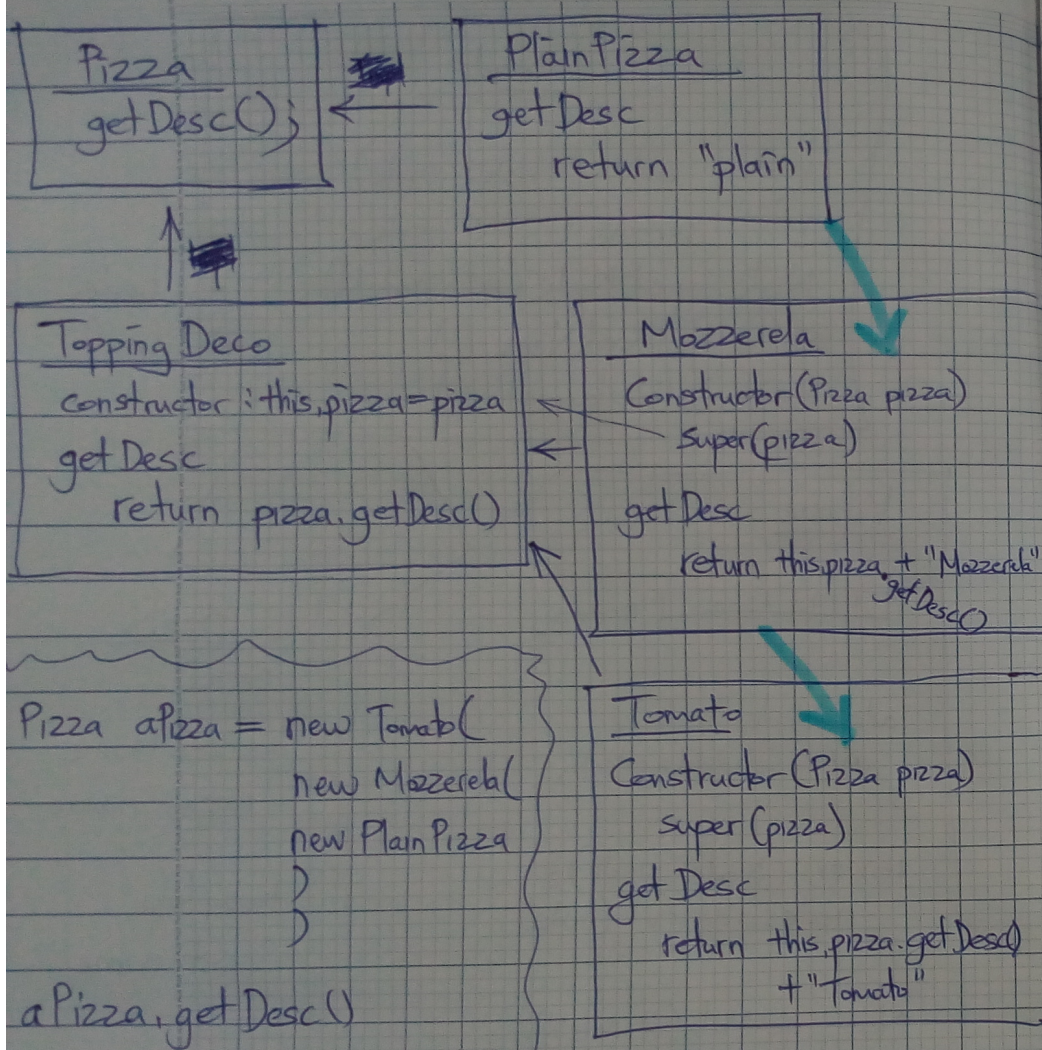 Pizza
getDesc();
PlainPizza
getDesc
return "plain"
Topping Deco
constructor : this.pizza=pizza
getDesc
return pizza.getDesc()
Mozzerela
Constructor(Pizza pizza)
super(pizza)
getDesc
return this.pizza.getDesc() + "Mozzerela"
Pizza aPizza = new Tomato(
new Mozzerela(
new PlainPizza
)
)
aPizza.getDesc()
Tomato
Constructor(Pizza pizza)
super(pizza)
getDesc
return this.pizza.getDesc()
+ "Tomato"